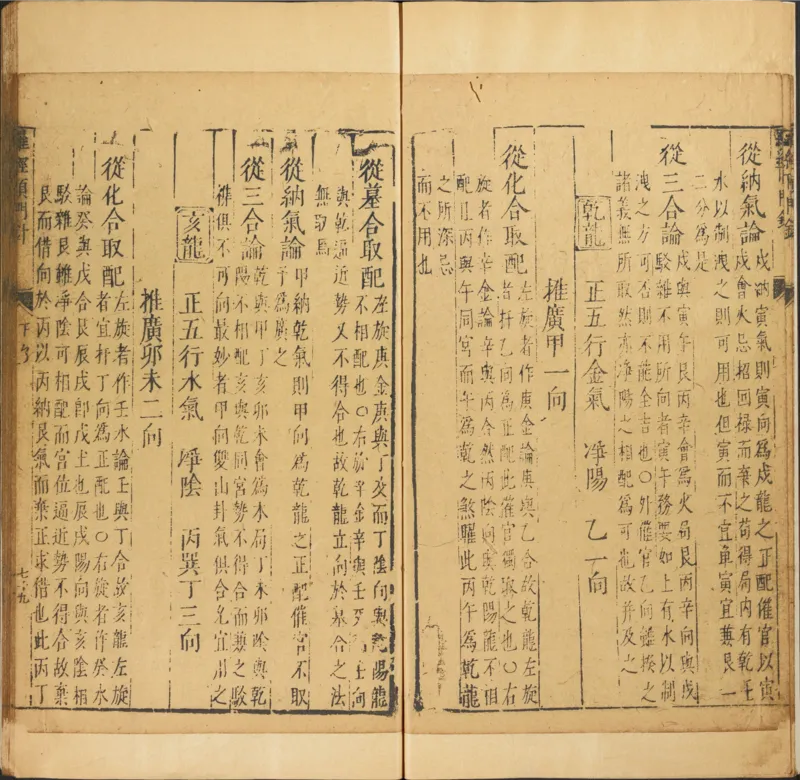 從納氣論戌納寅氣則寅向為戌龍之正配催官以寅
戌會火忌招回祿而棄之苟得局內有乾壬
水以制洩之則可用也但寅而不宜單寅宜兼艮一
二分為是
從三合論戌與寅午艮丙辛會為火局艮丙辛向與戌
駁雜不用所向者寅午務要如上有水以制
洩之方可否則不能全吉也○外催官乙向雖揆之
諸義無所取然亦淨陽之相配為可也故并及之
乾龍 正五行金氣 淨陽 乙一向
推廣甲一向
從化合取配左旋者作庚金論庚與乙合故乾龍左旋
者扦乙向為正配此催官獨取之也○右
旋者作辛金論辛與丙合然丙陰向與乾陽龍不相
配且丙與午同宮而午為乾之煞曜此丙午為乾龍
之所深忌
而不用也
從墓合取配左旋庚金庚與丁交而丁陰向與乾陽龍
不相配也○右旋辛金辛與壬 壬向
與乾逼近勢又不得合也故乾龍立向於墓合之法
無取焉
從納氣論甲納乾氣則甲向為乾龍之正配催官不取
予為廣之
從三合論乾與甲丁亥卯未會為木局丁未卯陰與乾
陽不相配亥與乾同宮勢不得合而兼之駁
雜俱不可向最妙者甲向雙山卦氣俱合允宜用之
亥龍 正五行水氣 淨陰 丙巽丁三向
推廣卯未二向
從化合取配左旋者作壬水論壬與丁合故亥龍左旋
者宜扦丁向為正配也○右旋者作癸水
論癸與戊合艮辰戌卽戊土也辰戌陽向與亥陰相
駁雜艮雖淨陰可相配而宮位逼近勢不得合故棄
艮而借向於丙以丙納艮氣而棄正求借也此丙丁
羅經頂門針
七六九